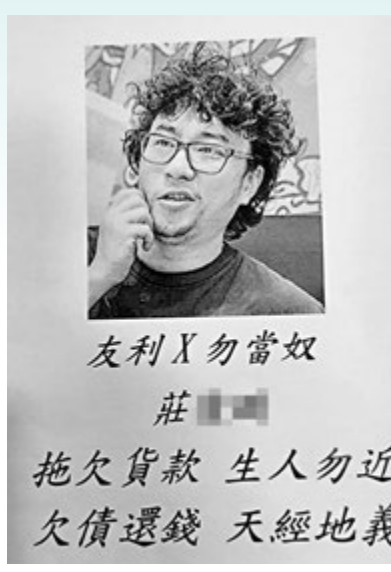 友利X勿當奴
莊
拖欠貨款 生人勿近
欠債還錢 天經地義